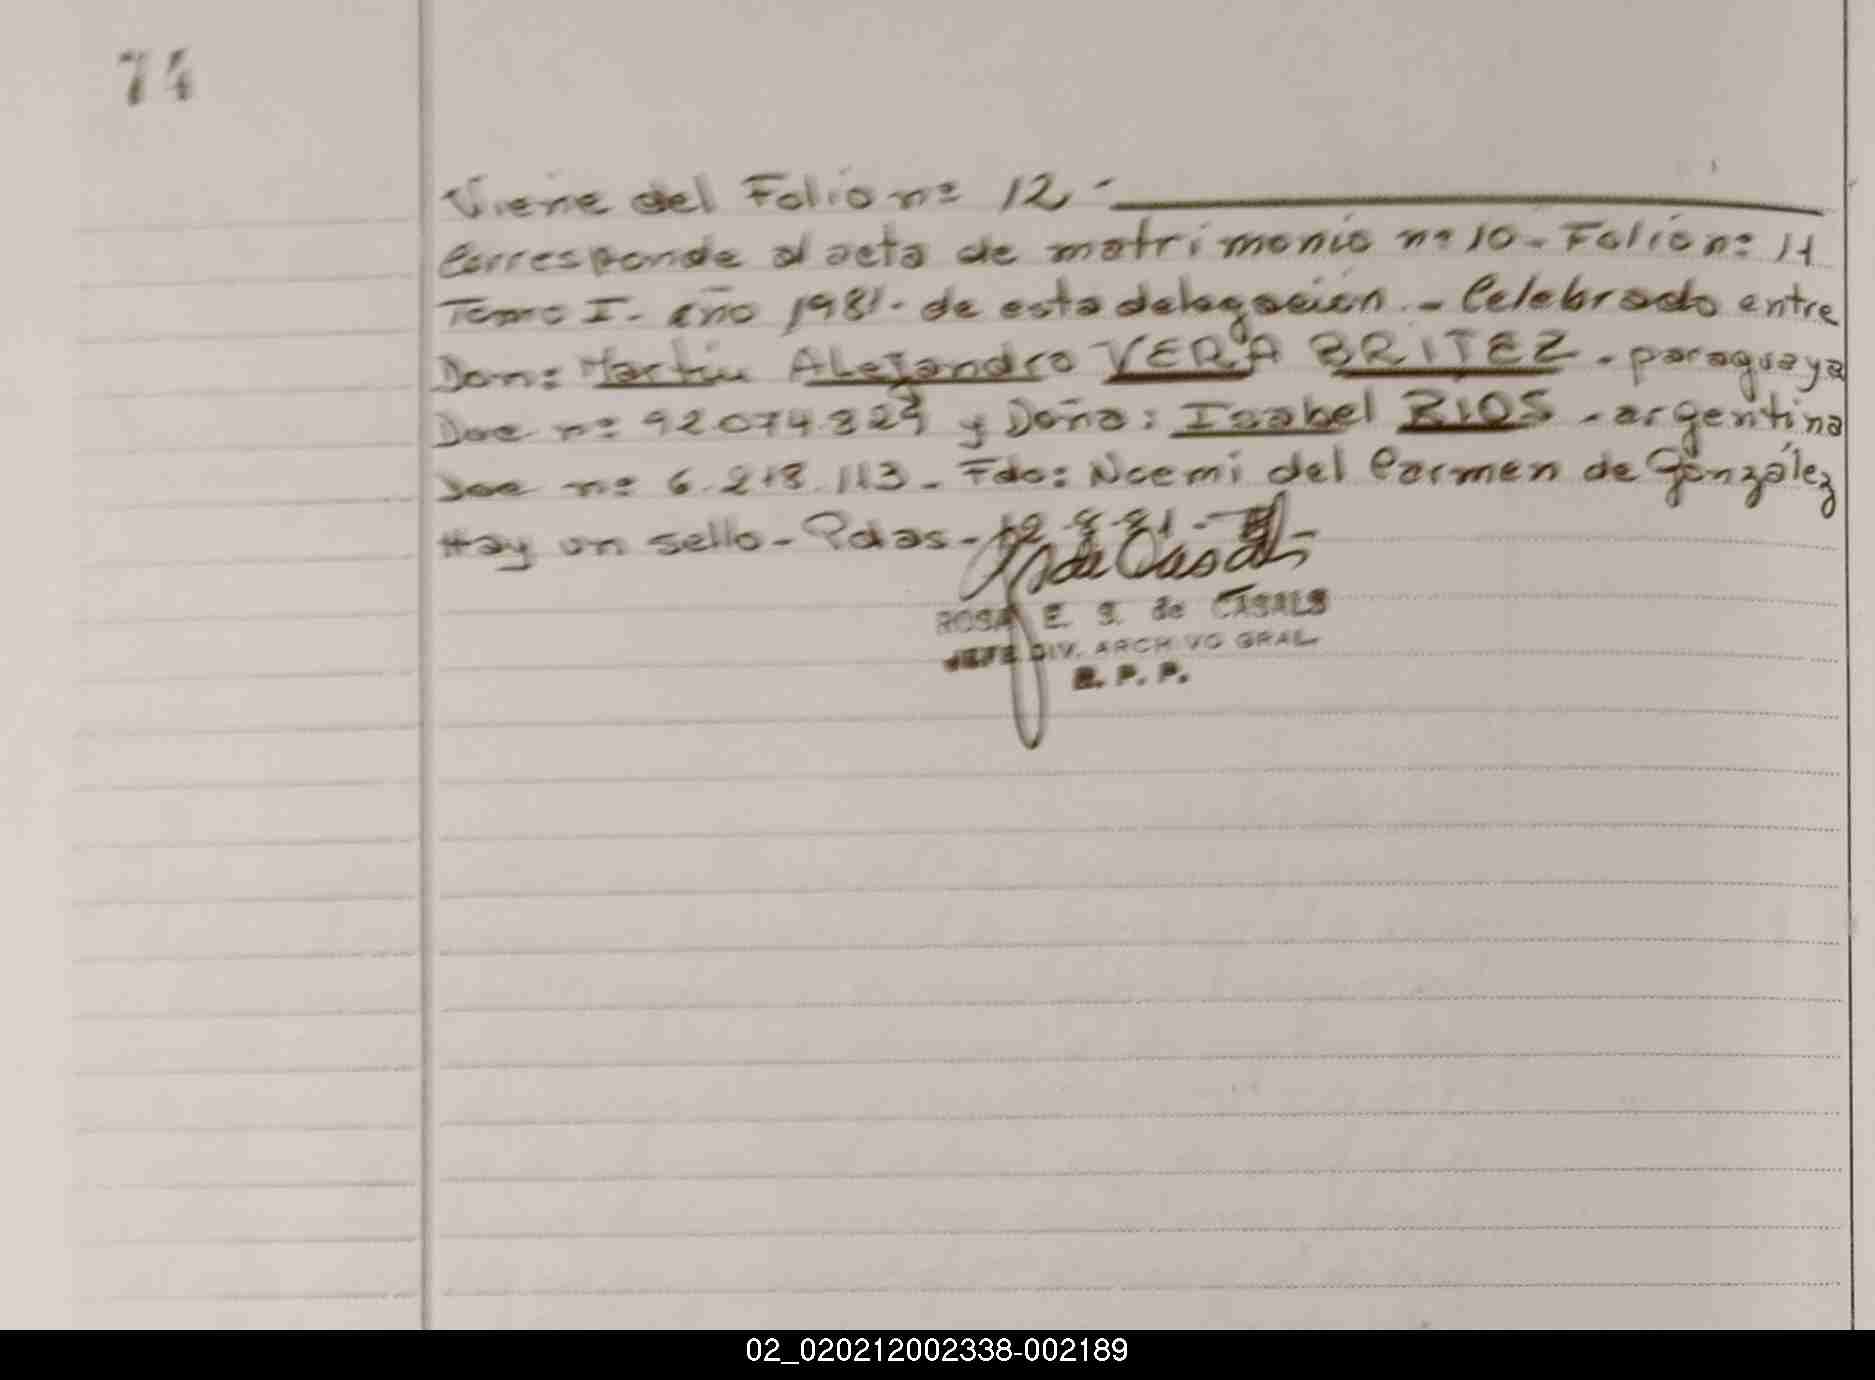 74
Viene del Folio nº 12 -
Corresponde al acta de matrimonio nº 10 - Folio nº 11
Tomo I - año 1981 - de esta delegación. - Celebrado entre
Don: Martín Alejandro VERA BRITEZ - paraguaya
Doc nº 92.074.829 y Doña: Isabel RIOS - argentina
Doc nº 6.218.113 - Fdo: Noemi del Carmen de González
Hay un sello - Pdas -
ROSA E. S. de CASALS
JEFE DIV. ARCHIVO GRAL.
R. P. P.
02_020212002338-002189